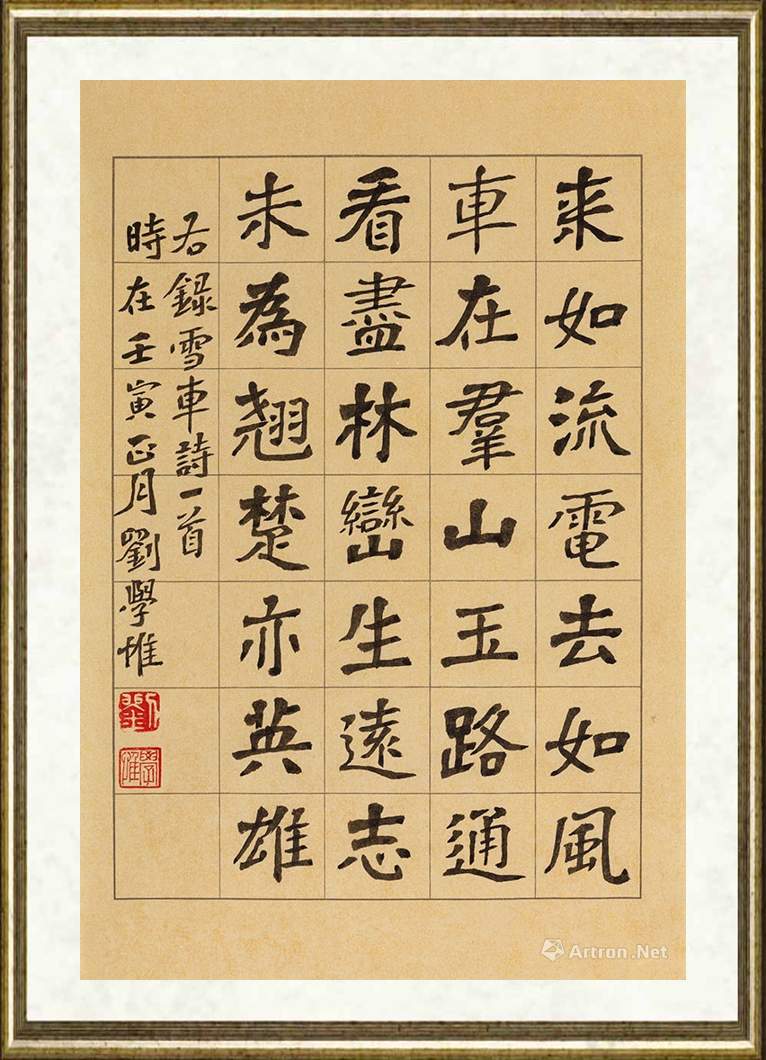 来如流電去如風
車在羣山玉路通
看盡林巒生遠志
未為翹楚亦英雄
右錄雪車詩一首
時在壬寅正月劉學惟
劉
學惟
Artron.Net